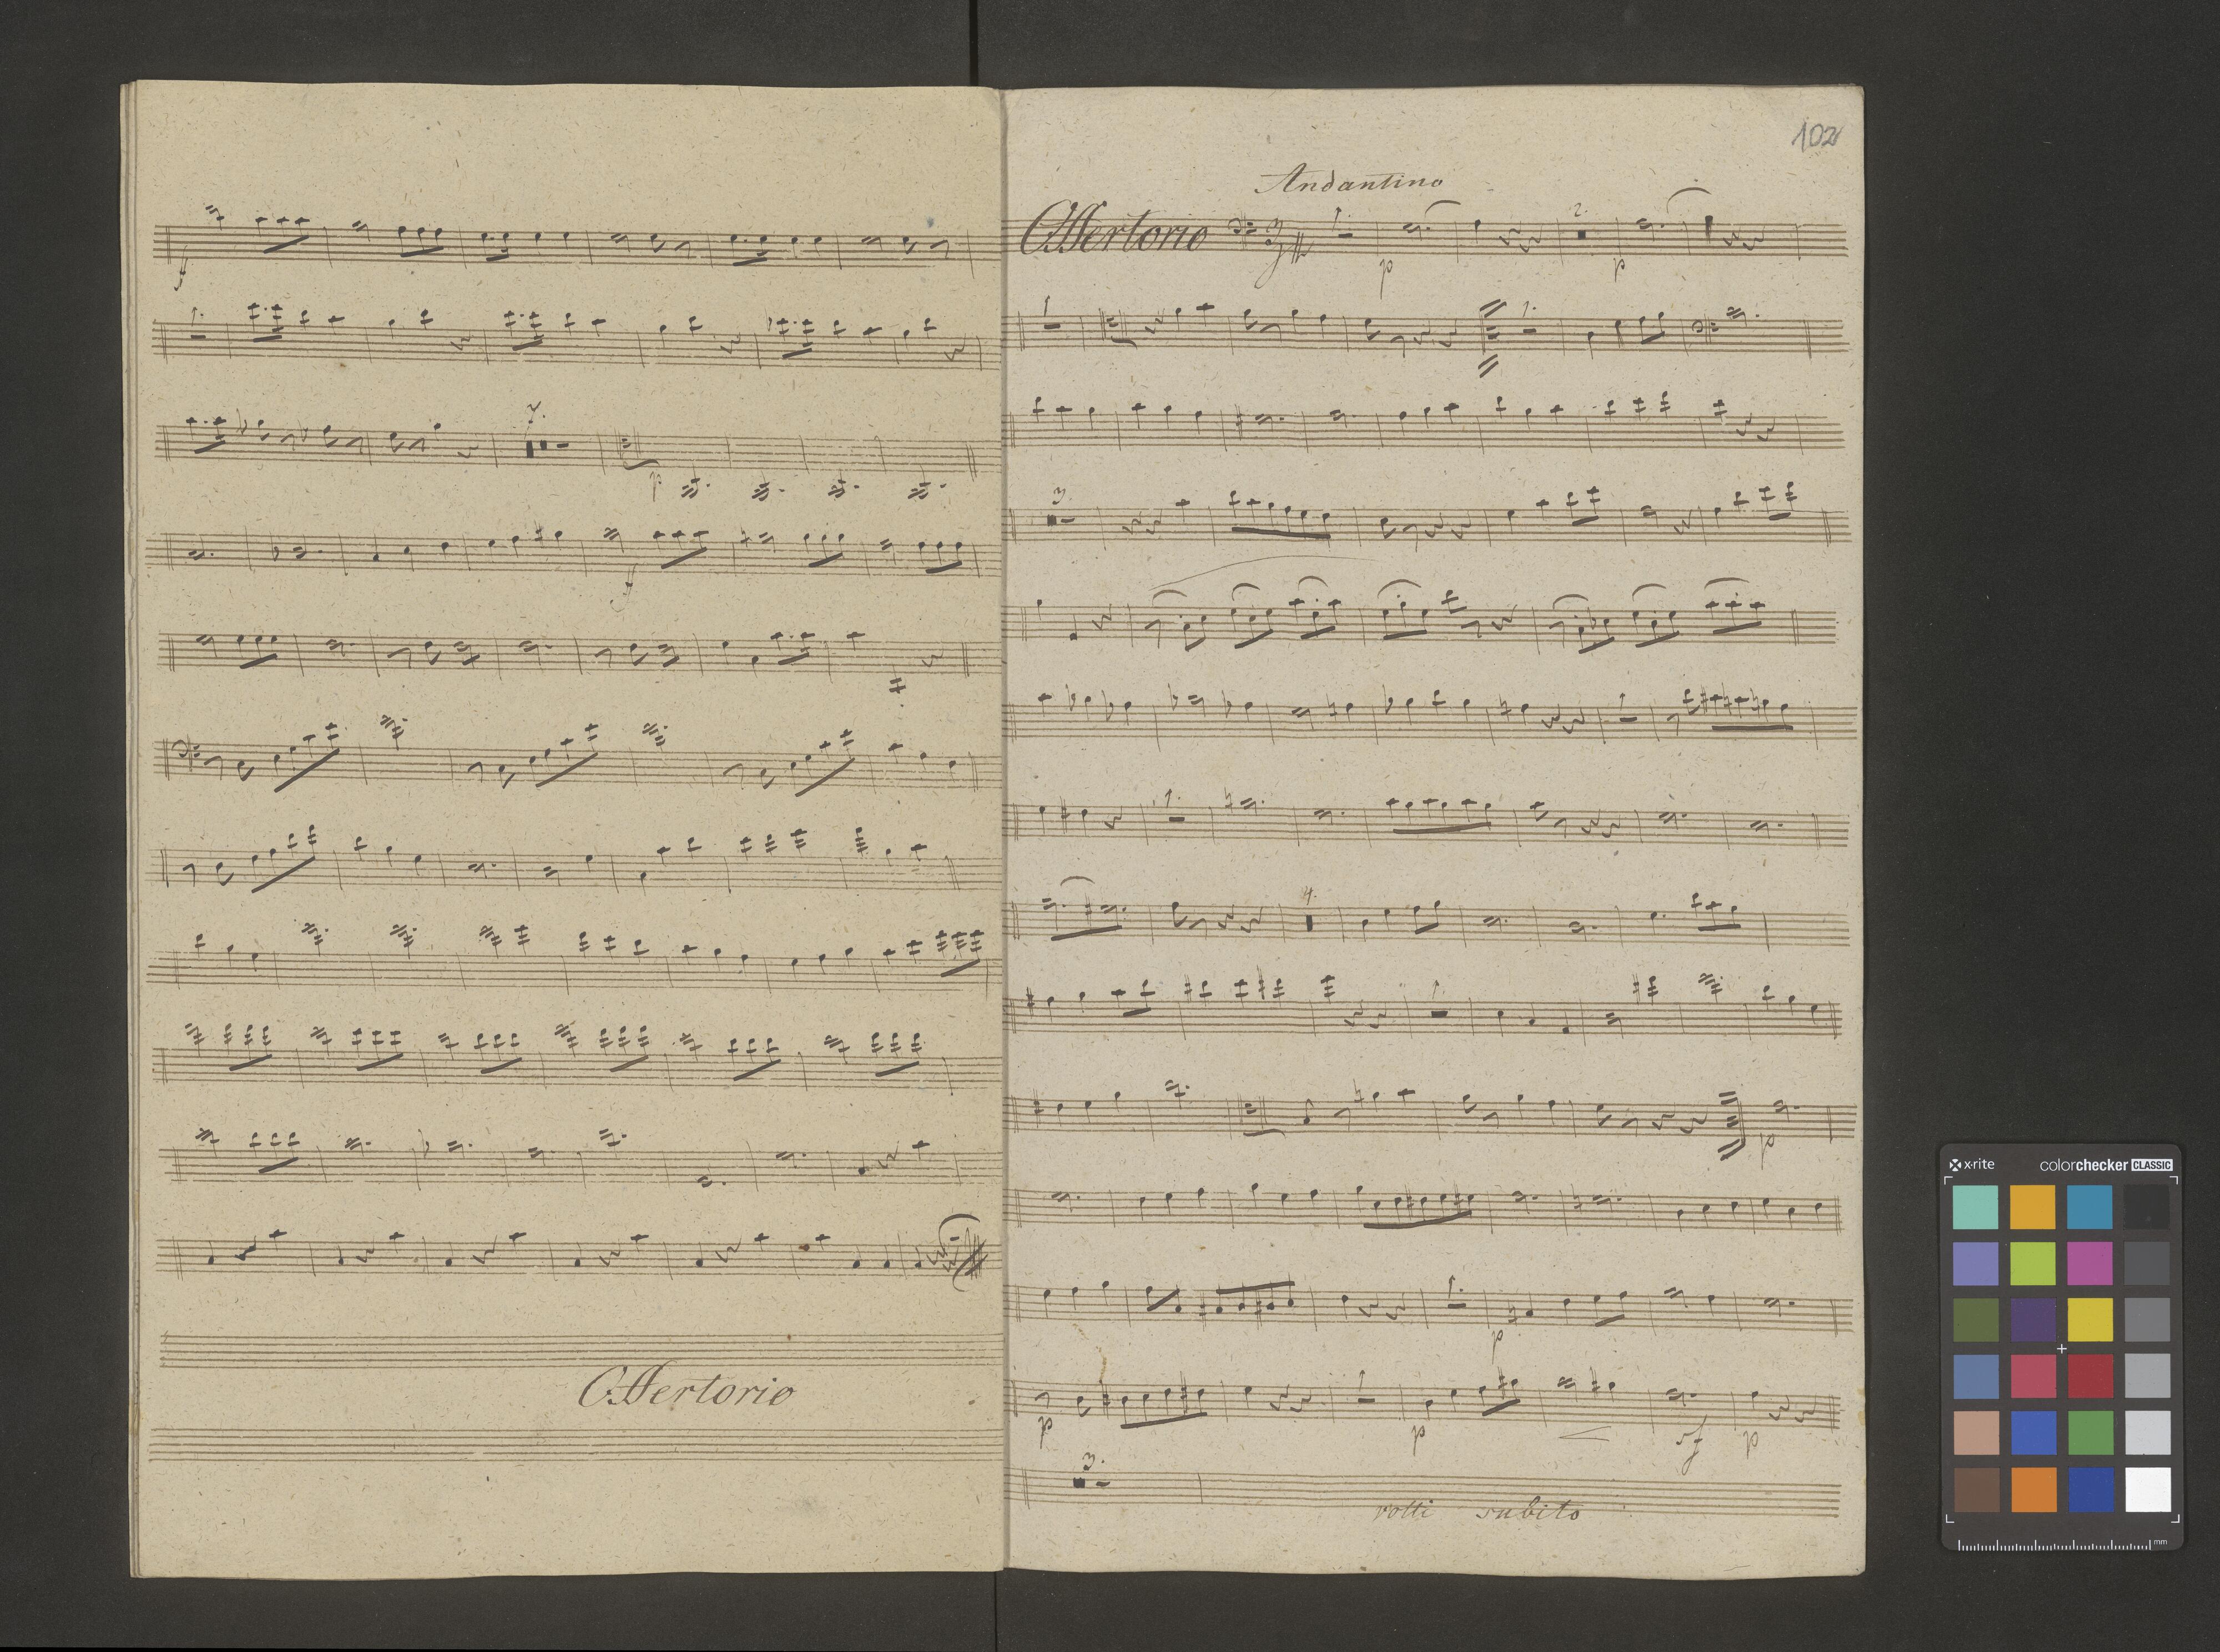 f
1.
7.
p
f
Offertorio
102
Andantino
Offertorio 3
1.
p
2.
p
1
1.
3
1
1.
4.
1
p
1.
p
p
1
p
sf
p
3.
volti subito
x-rite colorchecker CLASSIC
mm